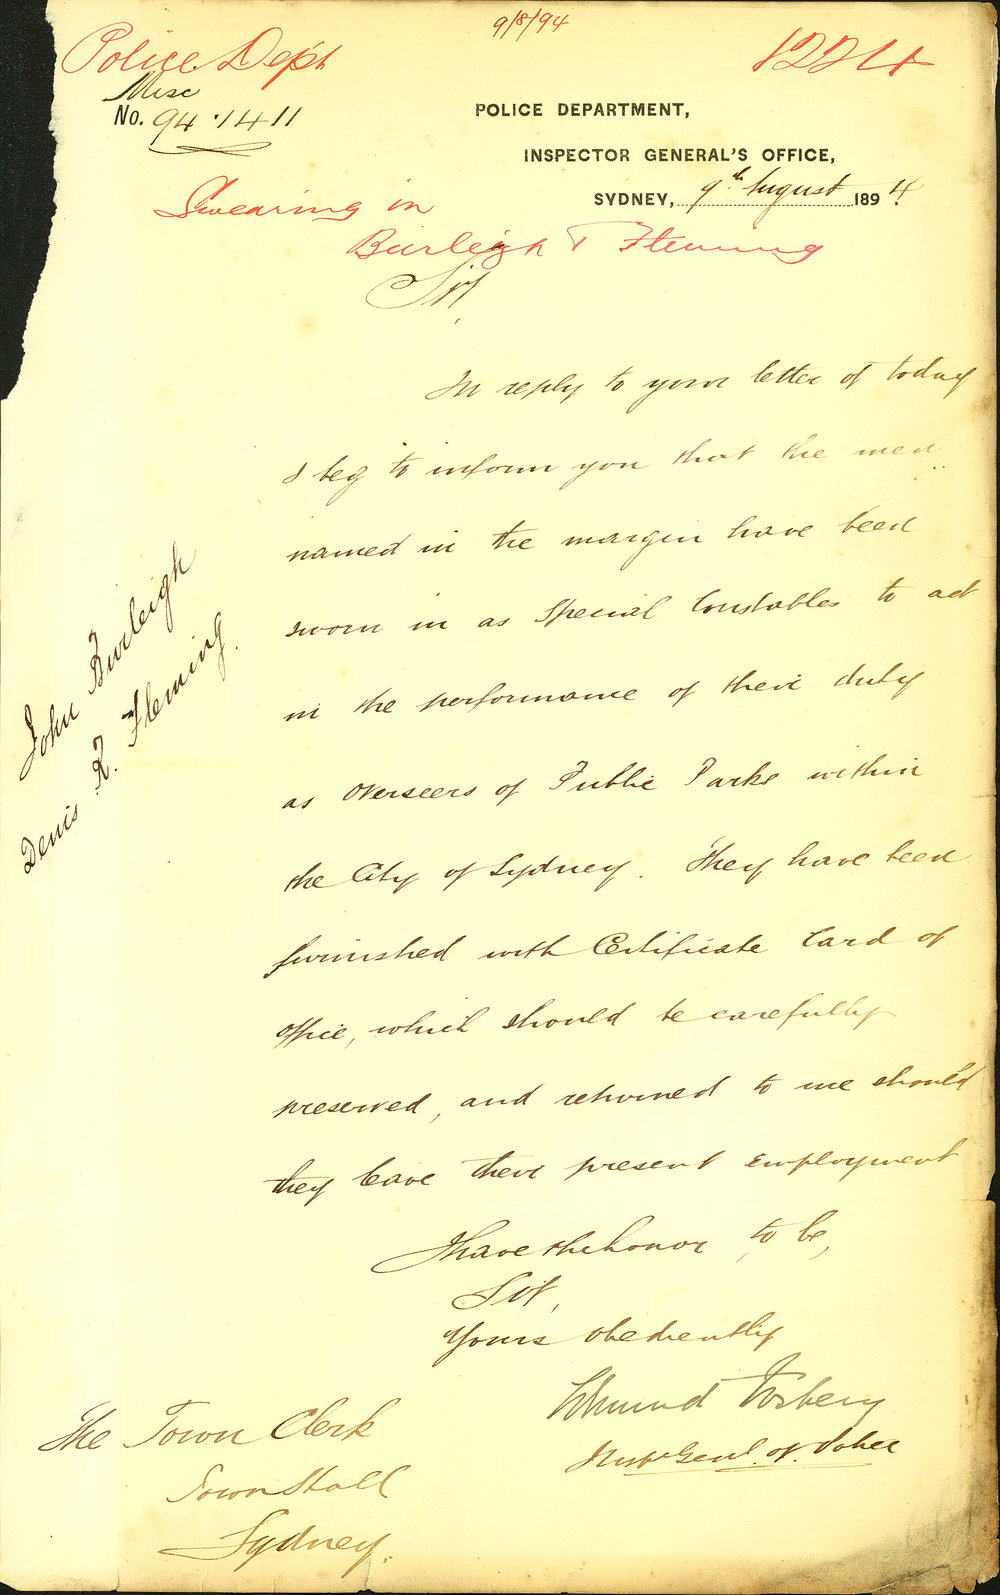 9/8/94
Police Dept
1224
Misc
No. 94.1411
POLICE DEPARTMENT,
INSPECTOR GENERAL'S OFFICE,
SYDNEY, 9th August 1894.
Swearing in
Burleigh & Fleming
Sir,
In reply to your letter of today
I beg to inform you that the men
named in the margin have been
sworn in as Special Constables to act
in the performance of their duty
as overseers of Public Parks within
the City of Sydney. They have been
furnished with Certificate Card of
office, which should be carefully
preserved, and returned to me should
they leave their present employment
John Burleigh
Denis R. Fleming.
I have the honor to be,
Sir,
Yours obediently
Edmund Fosbery
Inspr Genl. of Police
The Town Clerk
Town Hall
Sydney.